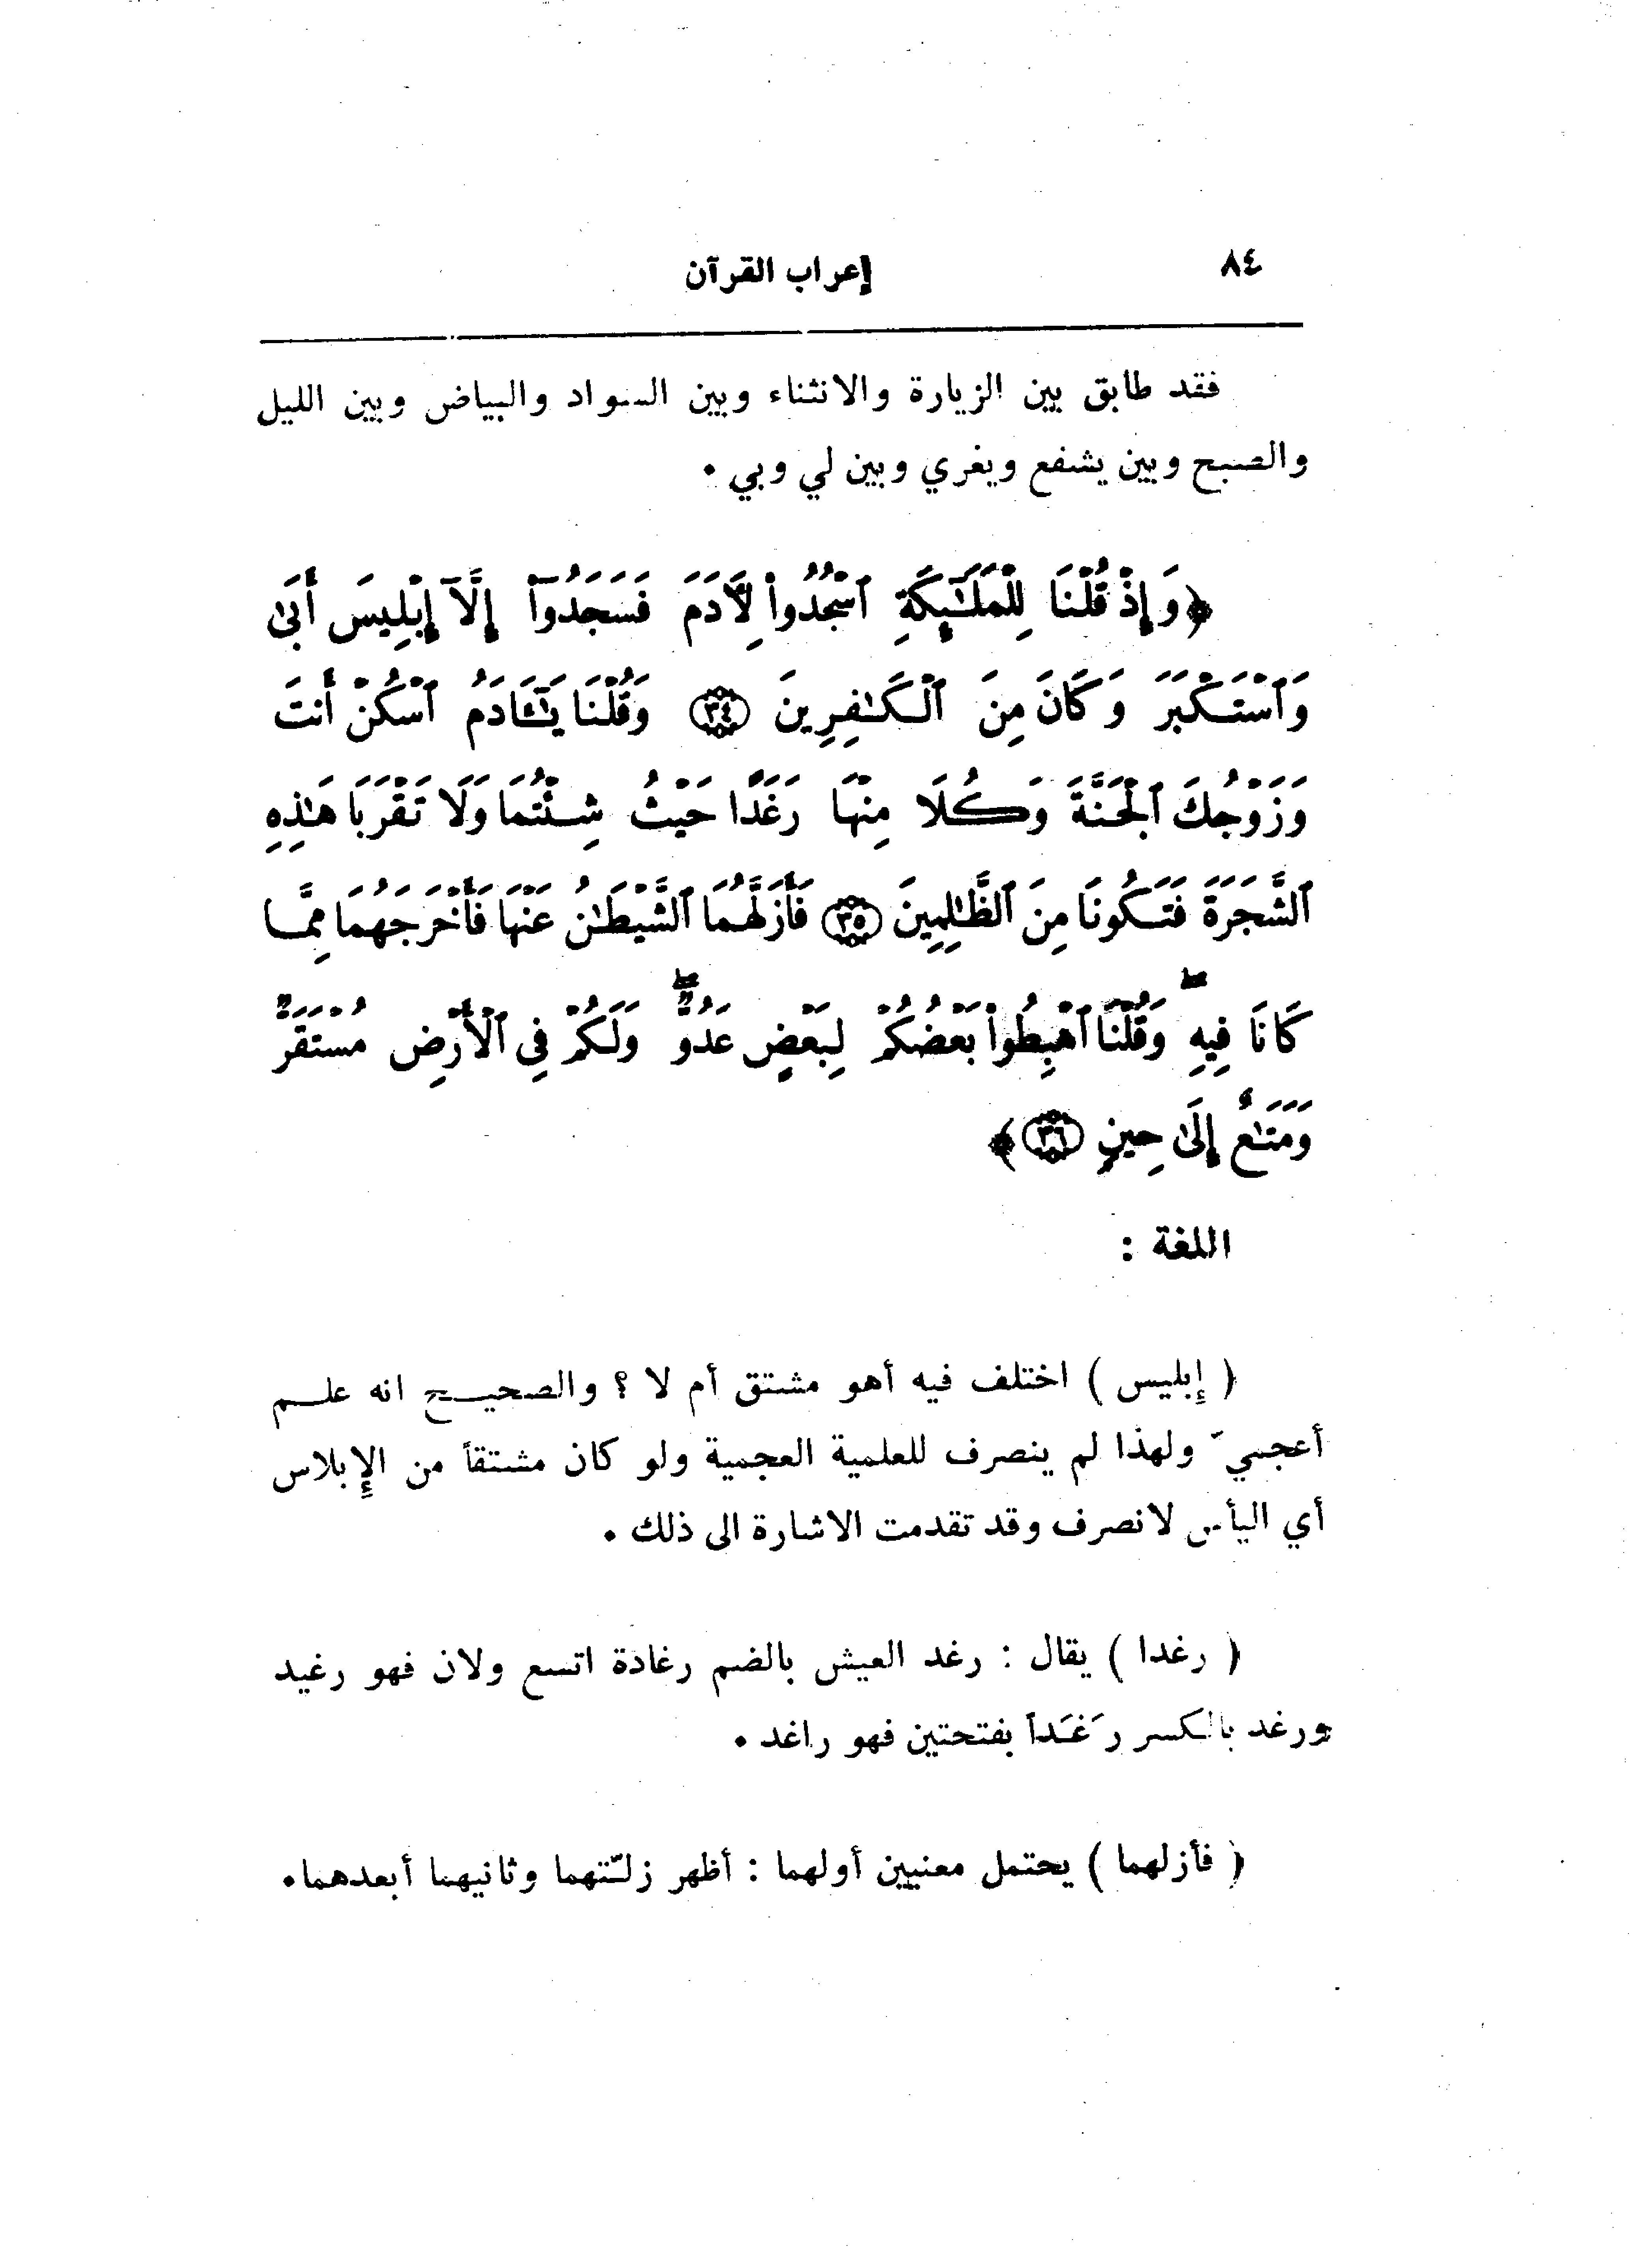 ٨٤
إعراب القرآن
فقد طابق بين الزيارة والانثناء وبين السواد والبياض وبين الليل
والصبح وبين يشفع ويغري وبين لي وبي .
﴿وَإِذْ قُلْنَا لِلْمَلَـٰٓئِكَةِ ٱسْجُدُوا۟ لِأَدَمَ فَسَجَدُوٓا۟ إِلَّآ إِبْلِيسَ أَبَىٰ
وَٱسْتَكْبَرَ وَكَانَ مِنَ ٱلْكَـٰفِرِينَ ﴿٣٤﴾ وَقُلْنَا يَـٰٓـَٔادَمُ ٱسْكُنْ أَنتَ
وَزَوْجُكَ ٱلْجَنَّةَ وَكُلَا مِنْهَا رَغَدًا حَيْثُ شِئْتُمَا وَلَا تَقْرَبَا هَـٰذِهِ
ٱلشَّجَرَةَ فَتَكُونَا مِنَ ٱلظَّـٰلِمِينَ ﴿٣٥﴾ فَأَزَلَّهُمَا ٱلشَّيْطَـٰنُ عَنْهَا فَأَخْرَجَهُمَا مِمَّا
كَانَا فِيهِ ۖ وَقُلْنَا ٱهْبِطُوا۟ بَعْضُكُمْ لِبَعْضٍ عَدُوٌّ ۖ وَلَكُمْ فِى ٱلْأَرْضِ مُسْتَقَرٌّ
وَمَتَـٰعٌ إِلَىٰ حِينٍ ﴿٣٦﴾﴾
اللغة :
( إبليس ) اختلف فيه أهو مشتق أم لا ؟ والصحيح انه علم
أعجميّ ولهذا لم ينصرف للعلمية العجمية ولو كان مشتقاً من الإبلاس
أي اليأس لانصرف وقد تقدمت الاشارة الى ذلك .
( رغدا ) يقال : رغد العيش بالضم رغادة اتسع ولان فهو رغيد
ورغد بالكسر رَغَداً بفتحتين فهو راغد .
( فأزلهما ) يحتمل معنيين أولهما : أظهر زلّتهما وثانيهما أبعدهما.